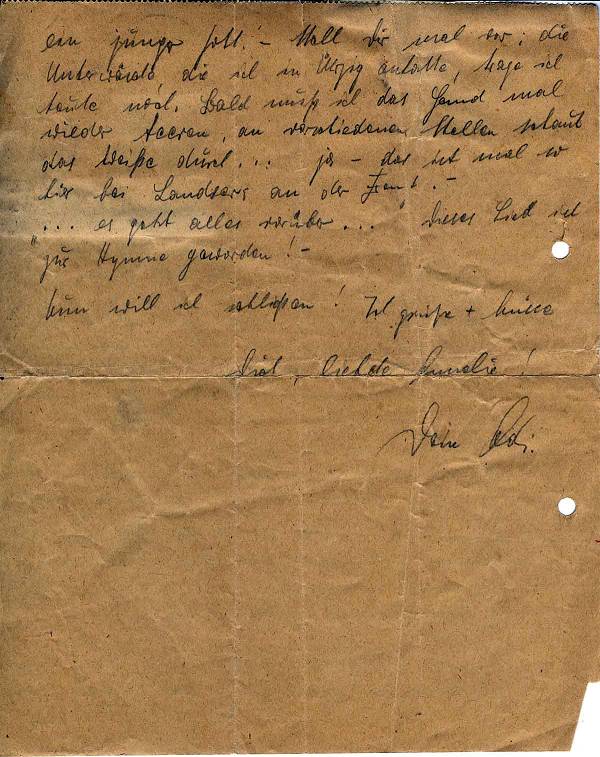 ein junger Gott! – Stell Dir mal vor: die
Unterwäsche, die ich in Ürzig anhatte, trage ich
heute noch. Bald muß ich das Hemd mal
wieder teeren, an verschiedenen Stellen schaut
das Weiße durch... ja – das ist mal so
hier bei Landsers an der Front. –
"... es geht alles vorüber..." Dieses Lied ist
zur Hymne geworden! –
Nun will ich schließen! Ich grüße + küsse
Dich, liebste Annelie!
Dein Adi.